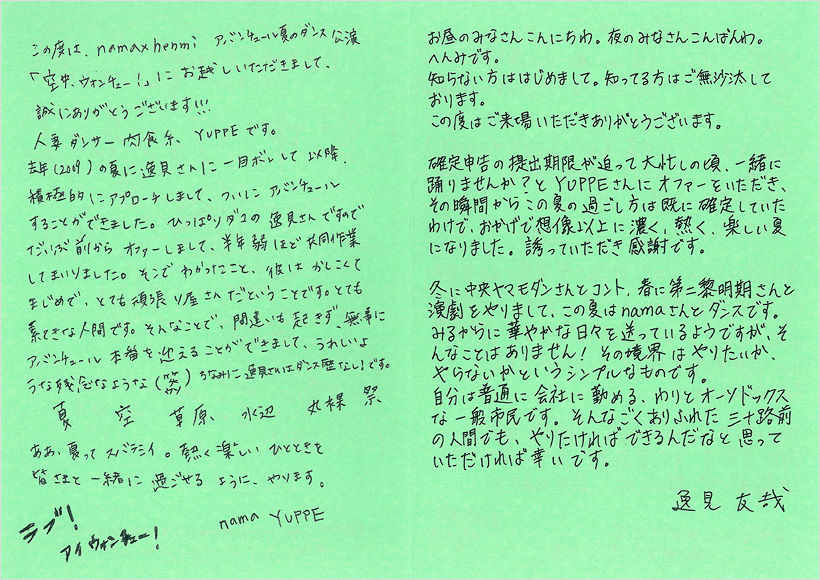 この度は、namaxhenmi アバンチュール夏のダンス公演
「空中、ウォンチュー！」にお越しいただきまして、
誠にありがとうございます!!!
人妻ダンサー肉食系、YUPPEです。
去年(2009)の夏に逸見さんに一目ボレして以降、
積極的にアプローチしまして、ついにアバンチュール
することができました。ひっぱりダコの逸見さんですので
だいぶ前からオファーしまして、半年弱ほど共同作業
してまいりました。そこでわかったこと、彼はかしこくて
まじめで、とても頑張り屋さんだということです。とても
素てきな人間です。そんなことで、間違いも起きず、無事に
アバンチュール本番を迎えることができまして、うれしいよ
うな残念なような(笑) ちなみに逸見さんはダンス歴なし！です。
夏 空 草原 水辺 丸裸 祭
ああ、夏ってスバラシイ。熱く楽しいひとときを
皆さまと一緒に過ごせるように、やります。
nama YUPPE
ラブ！
アイウォンチュー！
お昼のみなさんこんにちわ。夜のみなさんこんばんわ。
へんみです。
知らない方ははじめまして。知ってる方はご無沙汰して
おります。
この度はご来場いただきありがとうございます。
確定申告の提出期限が迫って大忙しの頃、一緒に
踊りませんか？とYUPPEさんにオファーをいただき、
その瞬間からこの夏の過ごし方は既に確定していた
わけで、おかげで想像以上に濃く、熱く、楽しい夏
になりました。誘っていただき感謝です。
冬に中央ヤマモダンさんとコント、春に第二黎明期さんと
演劇をやりまして、この夏はnamaさんとダンスです。
みるからに華やかな日々を送っているようですが、そ
んなことはありません！その境界はやりたいか、
やらないかというシンプルなものです。
自分は普通に会社に勤める、わりとオーソドックス
な一般市民です。そんなごくありふれた三十路前
の人間でも、やりたければできるんだなと思って
いただければ幸いです。
逸見 友哉